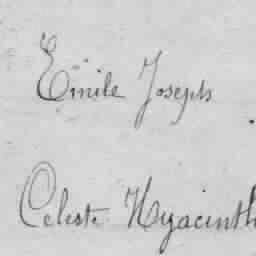 Emile Joseph
Celeste Hyacinth